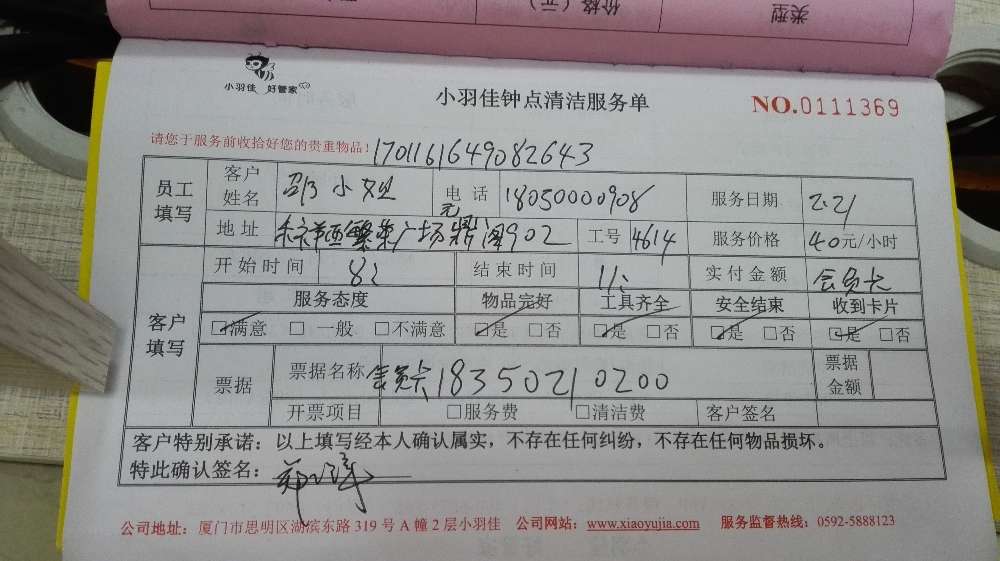 类型 价格（元）
小羽佳 好管家
小羽佳钟点清洁服务单
NO.0111369
请您于服务前收拾好您的贵重物品！
1701161649082643
员工填写 客户姓名 邵小姐 电话 18050000908 服务日期 2.21
地址 繁荣广场鼎阁902 工号 4614 服务价格 40元/小时
客户填写 开始时间 8: 结束时间 11: 实付金额 会员卡
服务态度 物品完好 工具齐全 安全结束 收到卡片
☑满意 □一般 □不满意 ☑是 □否 ☑是 □否 ☑是 □否 ☑是 □否
票据 票据名称 会员卡18350210200 票据金额
开票项目 □服务费 □清洁费 客户签名
客户特别承诺：以上填写经本人确认属实，不存在任何纠纷，不存在任何物品损坏。
特此确认签名：
公司地址：厦门市思明区湖滨东路 319 号 A 幢 2 层小羽佳 公司网站：www.xiaoyujia.com 服务监督热线：0592-5888123